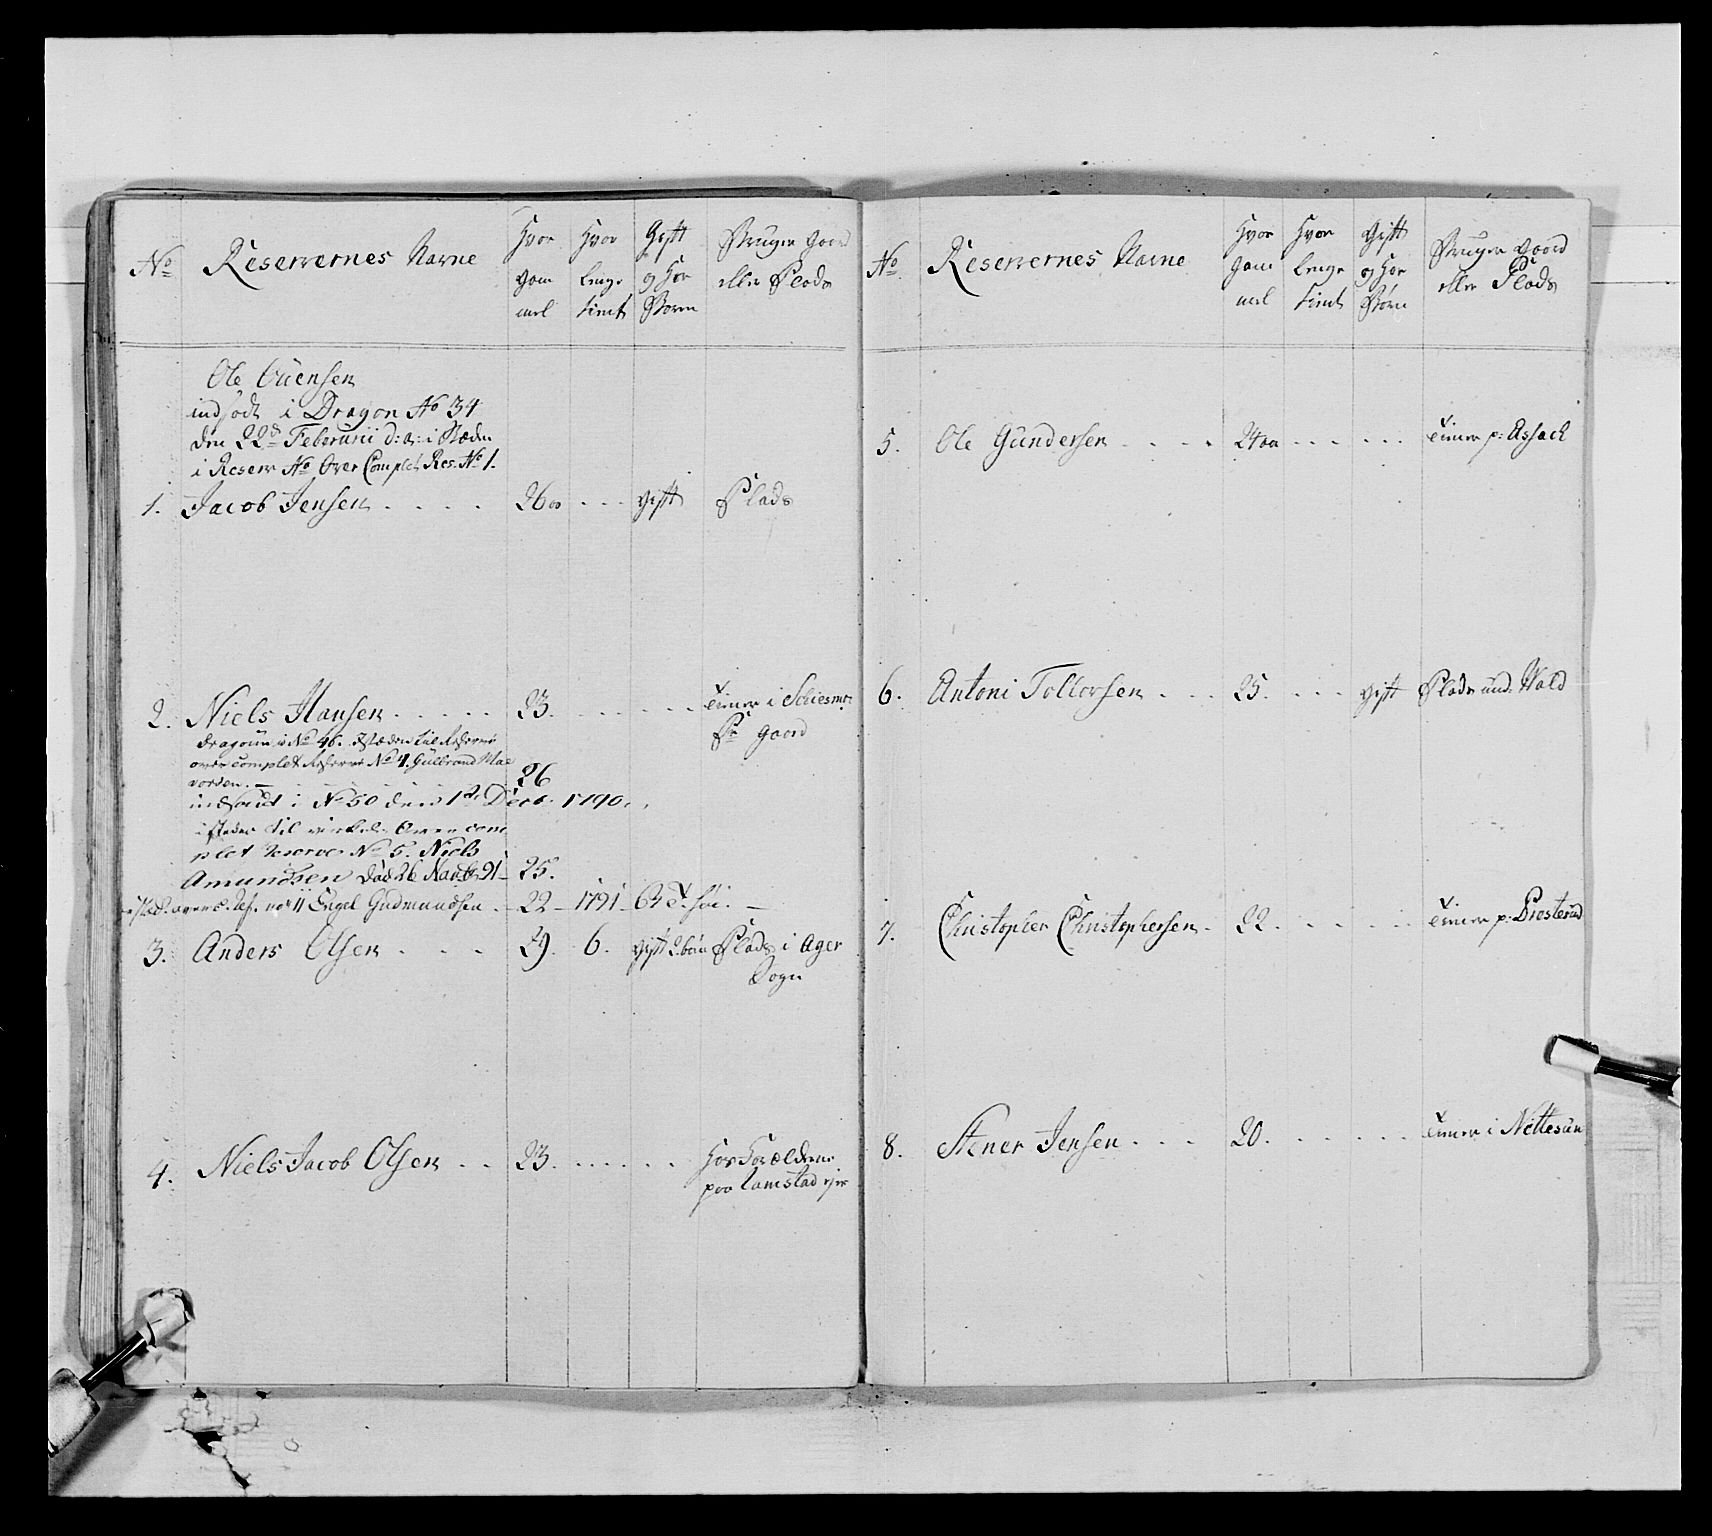 No Reservernes Navne Hvor gam mel Hvor lenge tient Gift og Hor Børn Bruger Gaord eller Plads
Ole Evensen
indsadt i Dragon No 34
den 22d Februarii d: a: i Stæden
i Reserv No Over Complet Res. No 1.
1. Jacob Jensen . . . . 26 . . . gift Plads
2. Niels Hansen . . . . . 23. . . . . . . tiener i
Gaord
Dragoun i No 46. i Stæden til Reserve
over complet Reserve No 4. Gulbrand
vorden. — 26
indsadt i No 50 den 1ste Decb. 1790.
i steden til Over com
plet Reserve No 5. Niels
Amundsen Død 26 Novb. 91 — 25.
no 11 Engel Gudmundsen . — 22 — 1791 —
3. Anders Olsen . . . 29. 6. gift 2 børn Plads i Ager
Sogn
4. Niels Jacob Olsen . . 23. . . . . . . Hos Forældrene
paa Ramstad
No Reservernes Navne Hvor gam mel Hvor lenge tient Gift og Hor Børn Bruger Gaord eller Plads
5. Ole Gundersen . . . . 24 . . . . . . tiener p: Assack
6. Antoni Tollorsen . . . 25. . . . gift Plads und. Wold
7. Christopher Christophersen . 22. . . . . . tiener p: Prosterud
8. Stener Jensen . . . 20. . . . . . . tiener i Nettesun